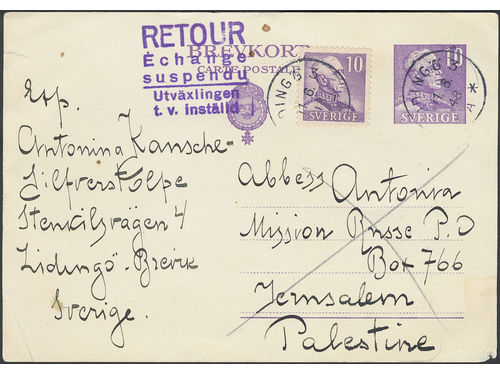 RETOUR
Échange
suspendu
Utväxlingen
t. v. inställd
BREVKORT
CARTE POSTALE
10
SVERIGE
10
SVERIGE
LIDINGÖ 3
LIDINGÖ 3
48
A *
Exp.
Antonina Kansche-
Silfverstolpe
Stenkilsvägen 4
Lidingö-Brevik
Sverige.
Abbess Antonina
Mission Russe P.O
Box 766
Jerusalem
Palestine